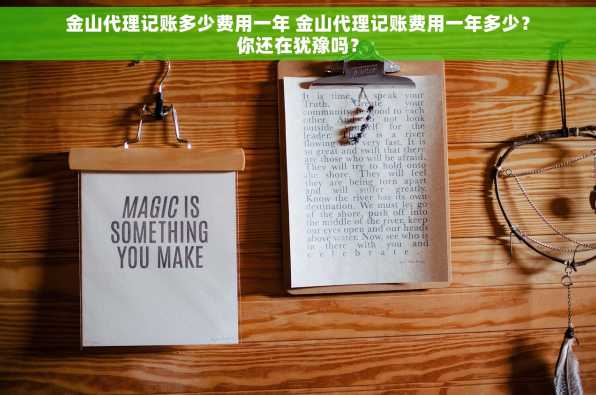 金山代理记账多少费用一年 金山代理记账费用一年多少？
你还在犹豫吗？
MAGIC IS
SOMETHING
YOU MAKE
It is time speak your
Truth. your
communit good to each
other. And not look
outside elf for the
leader. is a river
flowing very fast. It is
so great and swift that there
are those who will be afraid.
They will try to hold onto
the shore. They will feel
they are being torn apart
and will suffer greatly.
Know the river has its own
destination. We must let go
of the shore, push off into
the middle of the river, keep
our eyes open and our heads
above water. Now, see who is
in there with you and
celebrate.